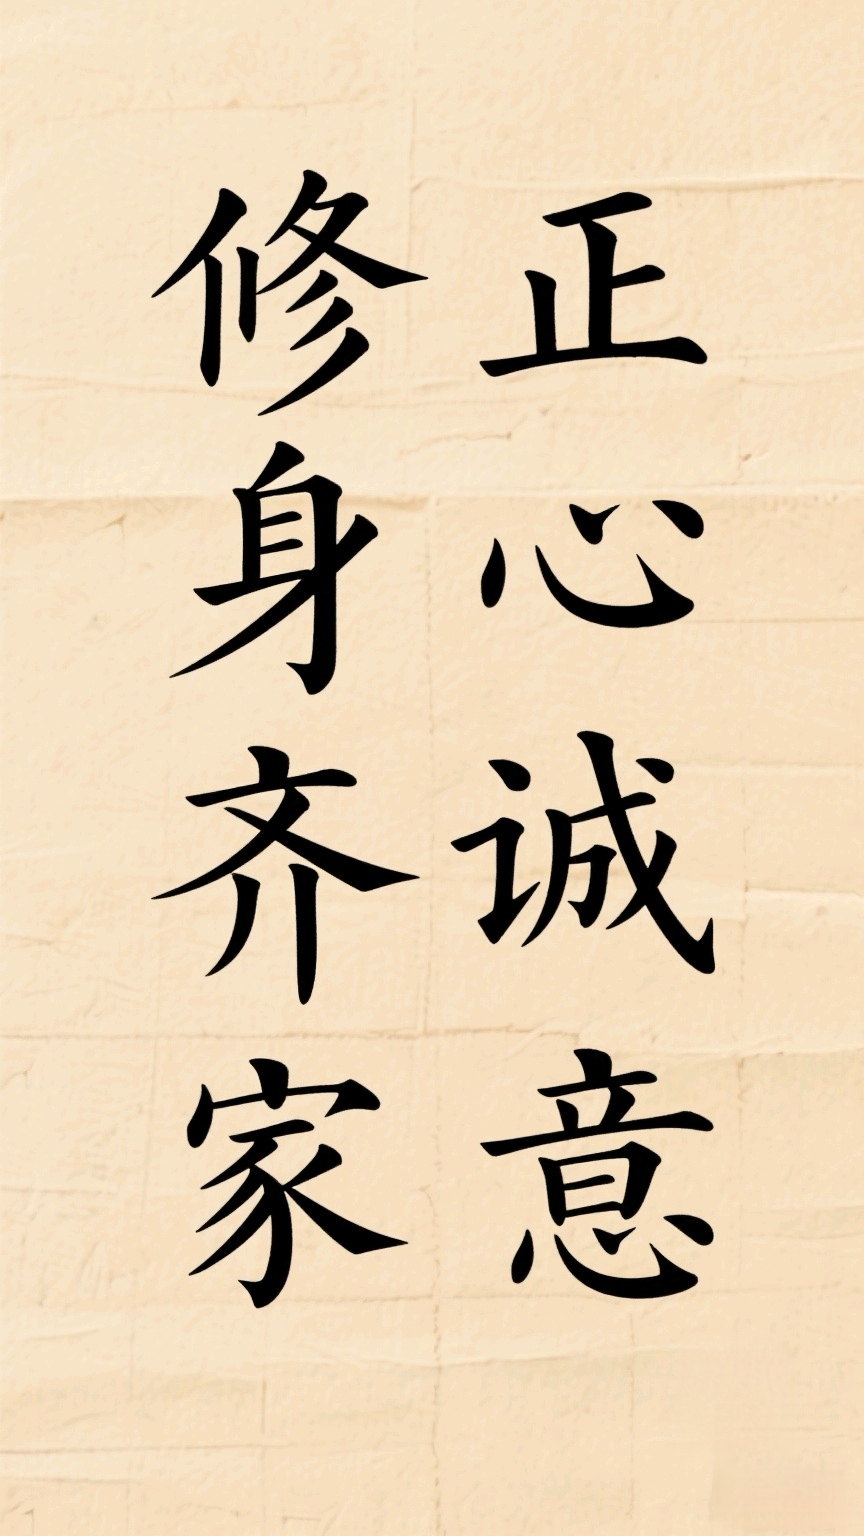 正心诚意
修身齐家